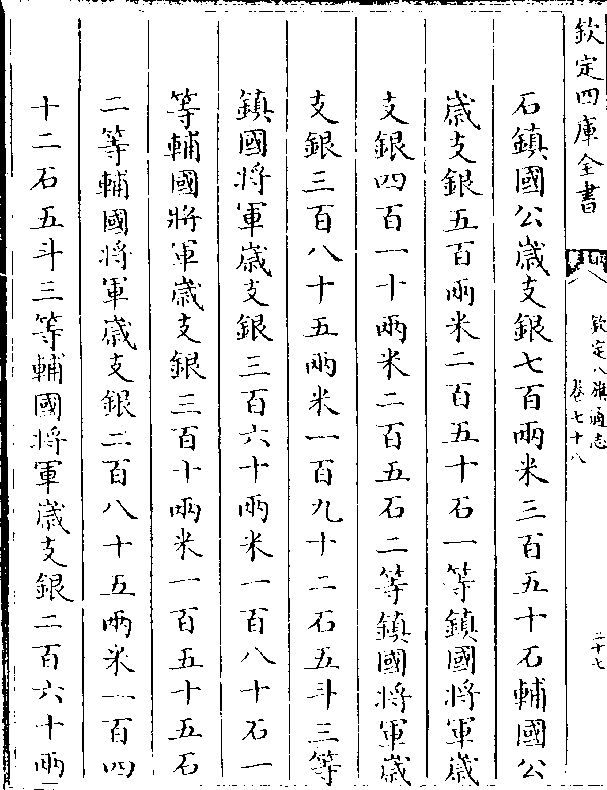 欽定四庫全書
欽定八旗通志
卷七十八
二十七
石鎮國公歲支銀七百兩米三百五十石輔國公
歲支銀五百兩米二百五十石一等鎮國將軍歲
支銀四百一十兩米二百五石二等鎮國將軍歲
支銀三百八十五兩米一百九十二石五斗三等
鎮國將軍歲支銀三百六十兩米一百八十石一
等輔國將軍歲支銀三百十兩米一百五十五石
二等輔國將軍歲支銀二百八十五兩米一百四
十二石五斗三等輔國將軍歲支銀二百六十兩